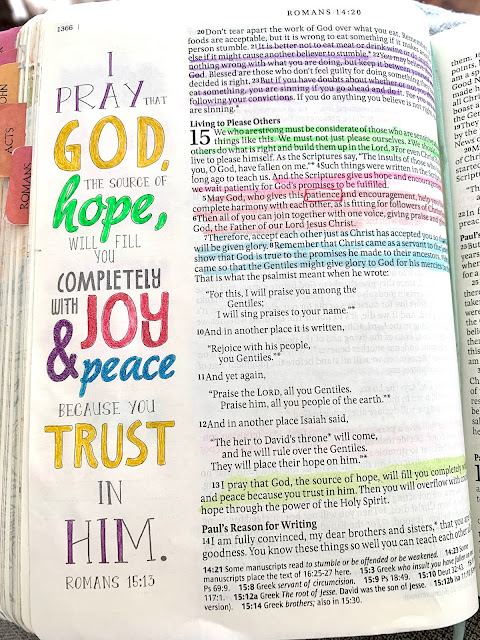 ROMANS 14:20
1366
ACTS
ROMANS
I
PRAY THAT
GOD,
THE SOURCE OF
hope,
WILL FILL
YOU
COMPLETELY
WITH JOY
& peace
BECAUSE YOU
TRUST
IN
HIM.
ROMANS 15:13
20 Don't tear apart the work of God over what you eat. Remember
foods are acceptable, but it is wrong to eat something if it makes
person stumble. 21 It is better not to eat meat or drink wine or do
else if it might cause another believer to stumble.* 22 You may believe
nothing wrong with what you are doing, but keep it between yourself
God. Blessed are those who don't feel guilty for doing something they
decided is right. 23 But if you have doubts about whether or not
eat something, you are sinning if you go ahead and do it. For you are
following your convictions. If you do anything you believe is not right
are sinning.*
Living to Please Others
15 We who are strong must be considerate of those who are sensitive
things like this. We must not just please ourselves. 2 We should
others do what is right and build them up in the Lord. 3 For even Christ
live to please himself. As the Scriptures say, "The insults of those who
you, O God, have fallen on me."* 4 Such things were written in the
long ago to teach us. And the Scriptures give us hope and encouragement
we wait patiently for God's promises to be fulfilled.
5 May God, who gives this patience and encouragement, help you
complete harmony with each other, as is fitting for followers of Christ
6 Then all of you can join together with one voice, giving praise and
God, the Father of our Lord Jesus Christ.
7 Therefore, accept each other just as Christ has accepted you so that
will be given glory. 8 Remember that Christ came as a servant to the
show that God is true to the promises he made to their ancestors. 9
came so that the Gentiles might give glory to God for his mercies
That is what the psalmist meant when he wrote:
"For this, I will praise you among the
Gentiles;
I will sing praises to your name."*
10 And in another place it is written,
"Rejoice with his people,
you Gentiles."*
11 And yet again,
"Praise the LORD, all you Gentiles.
Praise him, all you people of the earth."*
12 And in another place Isaiah said,
"The heir to David's throne* will come,
and he will rule over the Gentiles.
They will place their hope on him."*
13 I pray that God, the source of hope, will fill you completely
and peace because you trust in him. Then you will overflow with
hope through the power of the Holy Spirit.
Paul's Reason for Writing
14 I am fully convinced, my dear brothers and sisters,* that you
goodness. You know these things so well you can teach each other
14:21 Some manuscripts read to stumble or be offended or be weakened. 14:23 Some
manuscripts place the text of 16:25-27 here. 15:3 Greek who insult you have fallen on
Ps 69:9. 15:8 Greek servant of circumcision. 15:9 Ps 18:49. 15:10 Deut 32:43.
117:1. 15:12a Greek The root of Jesse. David was the son of Jesse. 15:12b Isa
version). 15:14 Greek brothers; also in 15:30.